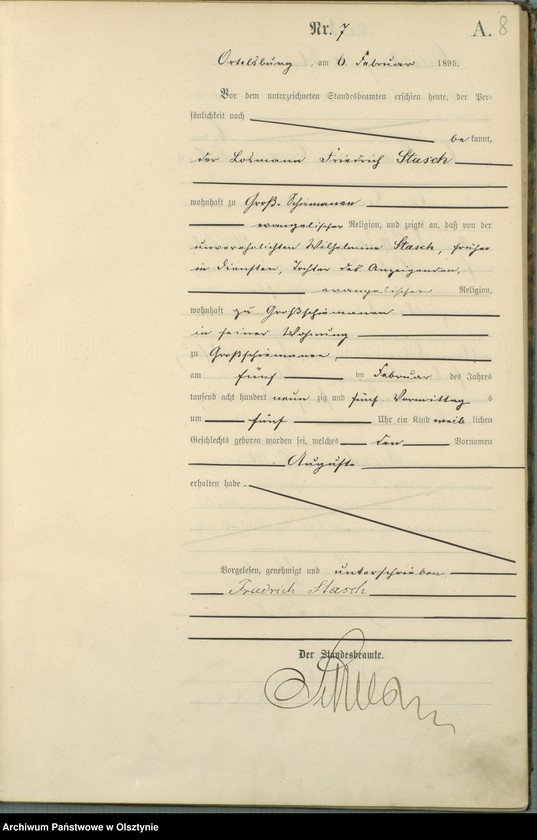 Nr. 7
A. 8
Ortelsburg, am 6. Februar 1895.
Vor dem unterzeichneten Standesbeamten erschien heute, der Per-
sönlichkeit nach
bekannt,
der Losmann Friedrich Stasch
wohnhaft zu Groß-Schiemanen
evangelischer Religion, und zeigte an, daß von der
unverehelichten Wilhelmine Stasch, früher
in Diensten, Tochter des Anzeigenden,
evangelischer Religion,
wohnhaft zu Großschiemanen
in seiner Wohnung
zu Großschiemanen
am fünf ten Februar des Jahres
tausend acht hundert neunzig und fünf Vormittag s
um fünf Uhr ein Kind weiblichen
Geschlechts geboren worden sei, welches den Vornamen
Auguste
erhalten habe.
Vorgelesen, genehmigt und unterschrieben
Friedrich Stasch
Der Standesbeamte.
Archiwum Państwowe w Olsztynie